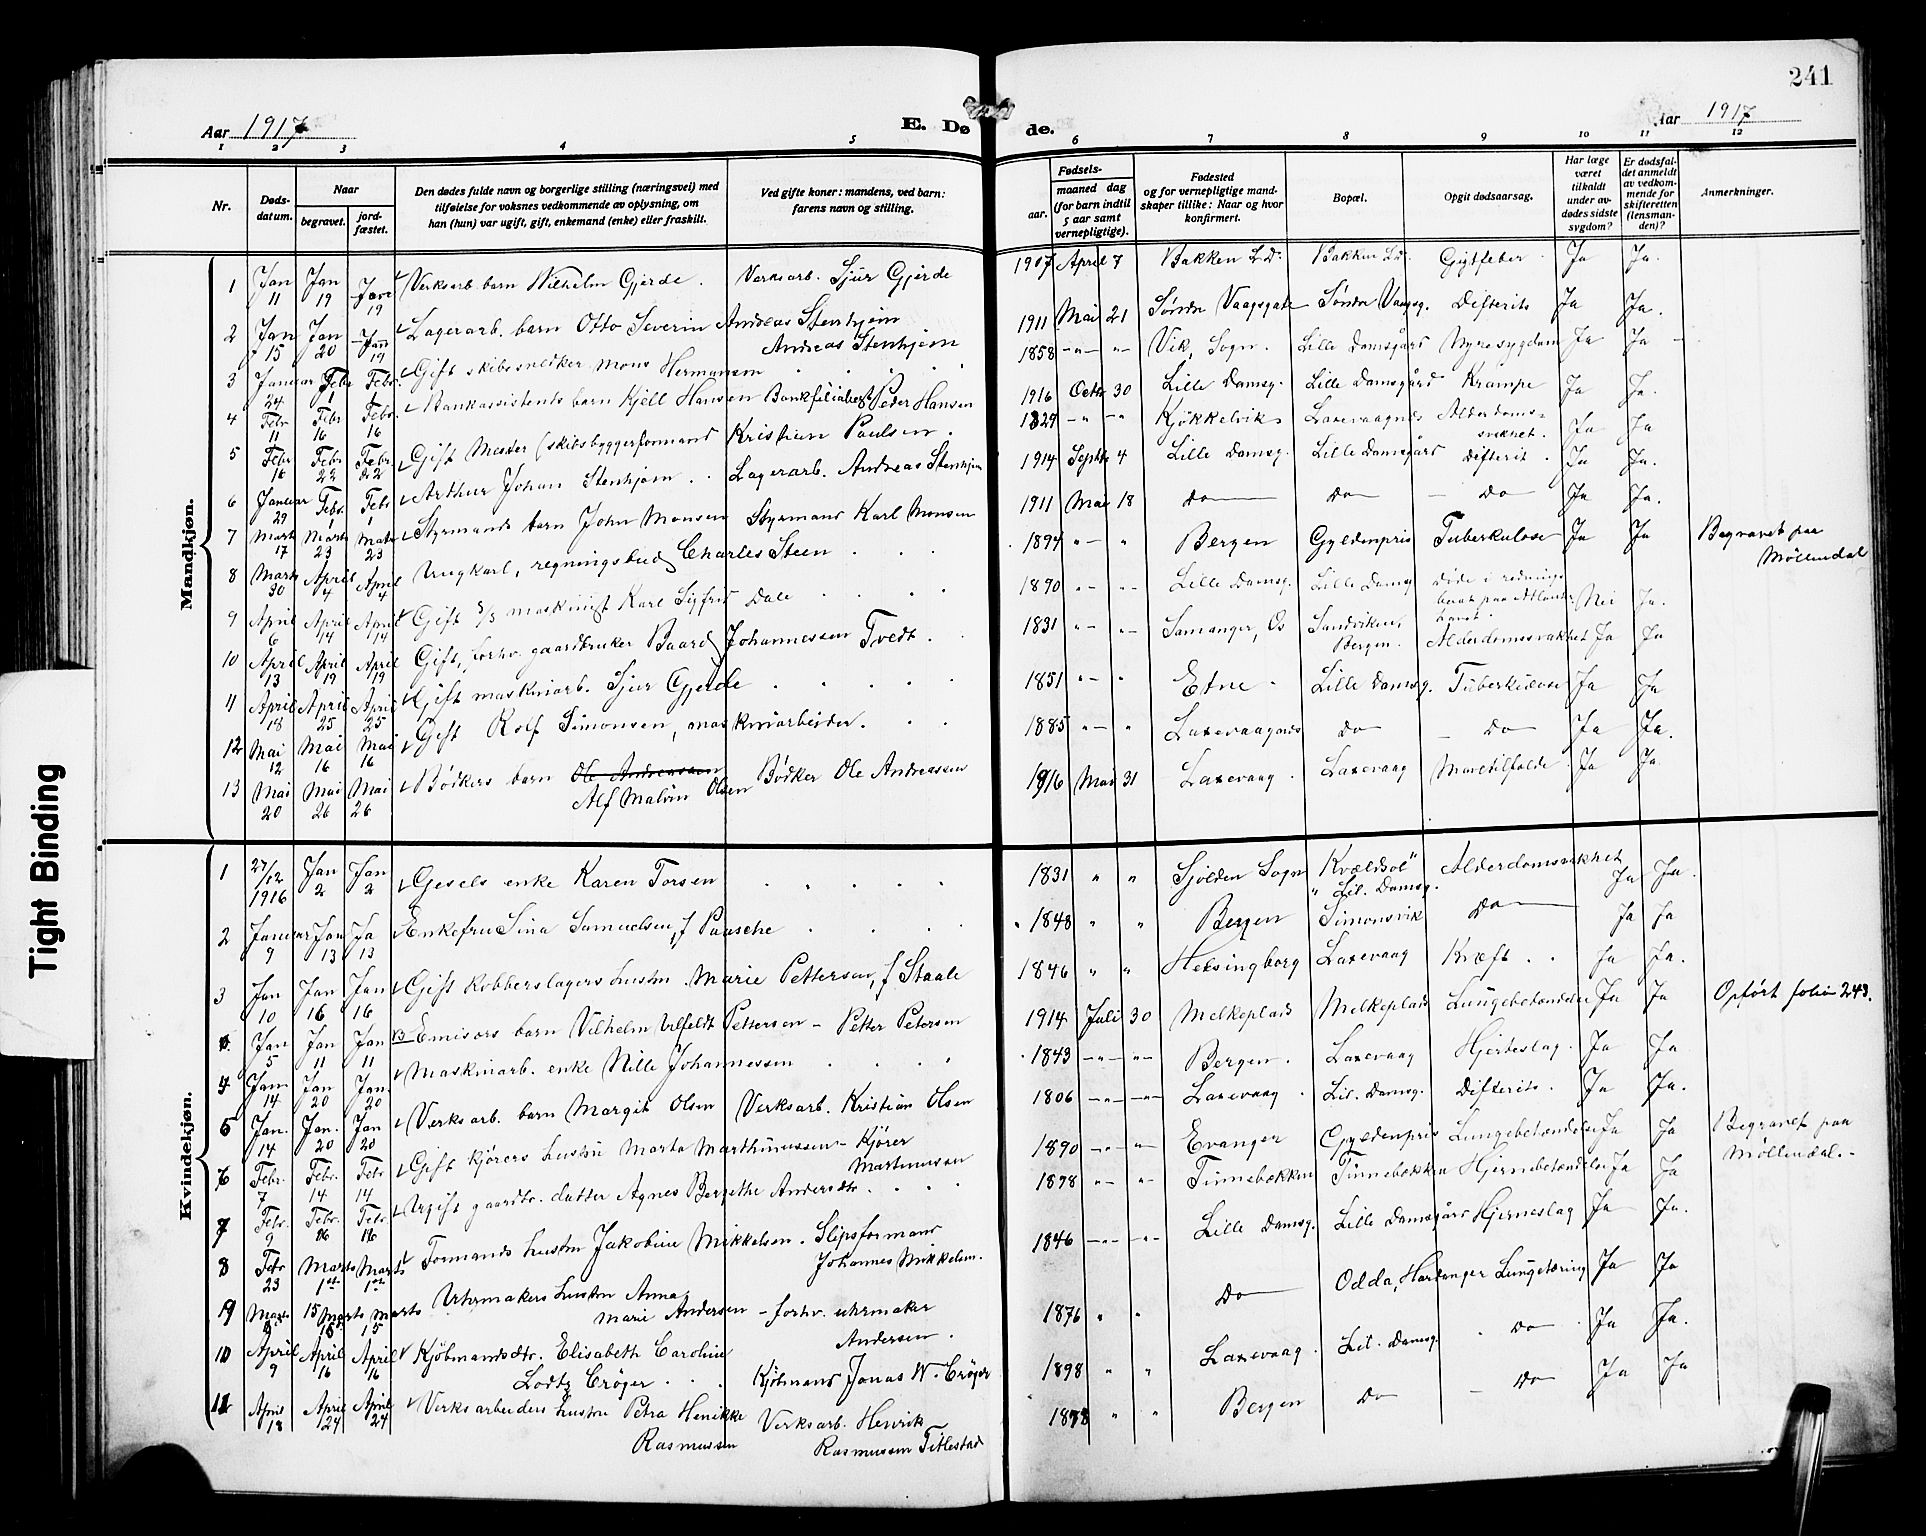 241
Aar 1917
E. Dø de.
Aar 1917
1 2 3 4 5 6 7 8 9 10 11 12
Nr.
Døds-
datum.
Naar
begravet.
jord-
fæstet.
Den dødes fulde navn og borgerlige stilling (næringsvei) med
tilføielse for voksnes vedkommende av oplysning, om
han (hun) var ugift, gift, enkemand (enke) eller fraskilt.
Ved gifte koner: mandens, ved barn:
farens navn og stilling.
Fødsels-
aar.
maaned dag
(for barn indtil
5 aar samt
vernepligtige).
Fødested
og for vernepligtige mand-
skaper tillike: Naar og hvor
konfirmert.
Bopæl.
Opgit dødsaarsag.
Har læge
været
tilkaldt
under av-
dødes sidste
sygdom?
Er dødsfal-
det anmeldt
av vedkom-
mende for
skifteretten
(lensman-
den)?
Anmerkninger.
Mandkjøn.
1 Jan 11 Jan 19 Jan 19 Verksarb. barn Wilhelm Gjerde. Verksarb. Sjur Gjerde 1907 April 7 Bakken L.D. Bakken L.D. Gigtfeber Ja Ja.
2 Jan 15 Jan 20 Jan 19 Lagerarb. barn Otto Severin Andreas Stenhjem
Andreas Stenhjem 1911 Mai 21 Søndre Vaagsgate Søndre Vaagsg. Difterit Ja Ja.
3 Januar 24 Febr 1 Febr. 1 Gift skibssnedker Mons Hermansen 1858 Vik, Sogn. Lille Damsgård Nyresygdom Ja Ja
4 Febr 11 Febr 16 Febr. 16 Bankassistents barn Kjell Hansen Bankfilialbest. Peder Hansen 1916 Octb 30 Lille Damsg. Lille Damsgård Krampe Ja Ja.
5 Febr 16 Febr 22 Febr. 22 Gift Mester (skibsbyggerformand Kristian Paulsen. 1829 Kjøkkelvik Laxevaagnes Alderdoms-
svakhet. Ja Ja
6 Januar 29 Febr. 1 Febr 1 Arthur Johan Stenhjem Lagerarb. Andreas Stenhjem 1914 Septb 4 Lille Damsg. Lille Damsgård Difterit. Ja Ja.
7 Marts 17 Marts 23 Marts 23 Styrmands barn John Monsen Styrmand Karl Monsen 1911 Mai 18 Do Do Do Ja Ja.
8 Marts 30 April 4 April 4 Ungkarl, regningsbud Charles Steen 1894 Bergen Gyldenpris Tuberkulose Ja Ja Begravet paa
Møllendal
9 April 6 April 14 April 14 Gift S/S maskinist Karl Sigfrid Dale 1890 Lille Damsg. Lille Damsg Døde i rednings
baat paa Atlanter
havet. Nei Ja.
10 April 13 April 19 April 19 Gift, forhv. gaardbruker Baard Johannessen Tvedt. 1831 Samanger, Os Sandviken,
Bergen. Alderdomssvakhet Ja Ja
11 April 18 April 25 April 25 Gift maskinarb. Sjur Gjerde 1851 Etne Lille Damsg. Tuberkulose Ja Ja
12 Mai 12 Mai 16 Mai 16 Gift Rolf Simonsen, maskinarbeider. 1885 Laxevaagnes Do Do Ja Ja.
13 Mai 20 Mai 26 Mai 26 Bødkers barn Ole Andreassen
Alf Malvin Olsen Bødker Ole Andreassen 1916 Mai 31 Laxevaag Laxevaag Mavetilfælde Ja Ja.
Kvindekjøn.
1 27/12 1916 Jan 2 Jan 2 enke Karen Torsen 1831 Sjolden Sogn Kvældsol"
" Lil. Damsg. Alderdomsvakhet Ja Ja.
2 Januar 9 Jan 13 Ja 13 Enkefru Sina Samuelsen, f Paasche 1848 Bergen Simonsvik Do Ja Ja
3 Jan 10 Jan 16 Jan 16 Gift kobberslagers hustru Marie Pettersen, f Staale 1846 Helsingborg Laxevaag Kræft. Ja Ja.
Jan 5 Jan 11 Jan 11 Emisærs barn Vilhelm Ulfeldt Pettersen - Petter Petersen 1914 Juli 30 Melkeplads Melkeplads Lungebetændelse Ja Ja Opført folio 243.
4 Jan. 14 Jan 20 Jan. 20 Maskinarb. enke Nille Johannessen 1843 Bergen. Laxevaag Hjerteslag. Ja Ja
5 Jan. 14 Jan. 20 Jan 20 Verksarb. barn Margit Olsen Verksarb. Kristian Olsen 1806 Laxevaag Lil. Damsg. Difterit. Ja Ja.
6 Febr. 7 Febr. 14 Febr 14 Gift kjørers hustru Marta Marthinussen - Kjører
Martinussen 1890 Evanger Gyldenpris Lungebetændelse Ja Ja Begravet paa
Møllendal.-
7 Febr. 9 Febr. 16 Febr. 16 Ugift gaardbr. datter Agnes Bergethe Andersdtr. 1898 Tinnebekken Tinnebekken Hjernebetændelse Ja Ja
8 Febr 23 Marts 1st Marts 1st Formands hustru Jakobine Mikkelsen. Slipsformand
Johannes Mikkelsen. 1846 Lille Damsg. Lille Damsgård Hjerneslag Ja Ja.
9 Marts 15 Marts Marts 15 Uhrmakers hustru Anna
Marie Andersen - forhv. uhrmaker
Andersen. 1876 Do Odda, Hardanger Lungetæring Ja Ja
10 April 9 April 16 April 16 Kjøbmandsdtr. Elisabeth Caroline
Lodtz Crøger Kjøbmand Jonas W. Crøger 1898 Laxevaag Lil. Damsg. Do Ja Ja.
11 April 18 April 24 April 24 Verksarbeiders hustru Petra Henrikke
Rasmussen Verksarb. Henrik
Rasmussen Titlestad 1878 Bergen Do Do Ja Ja
Tight Binding